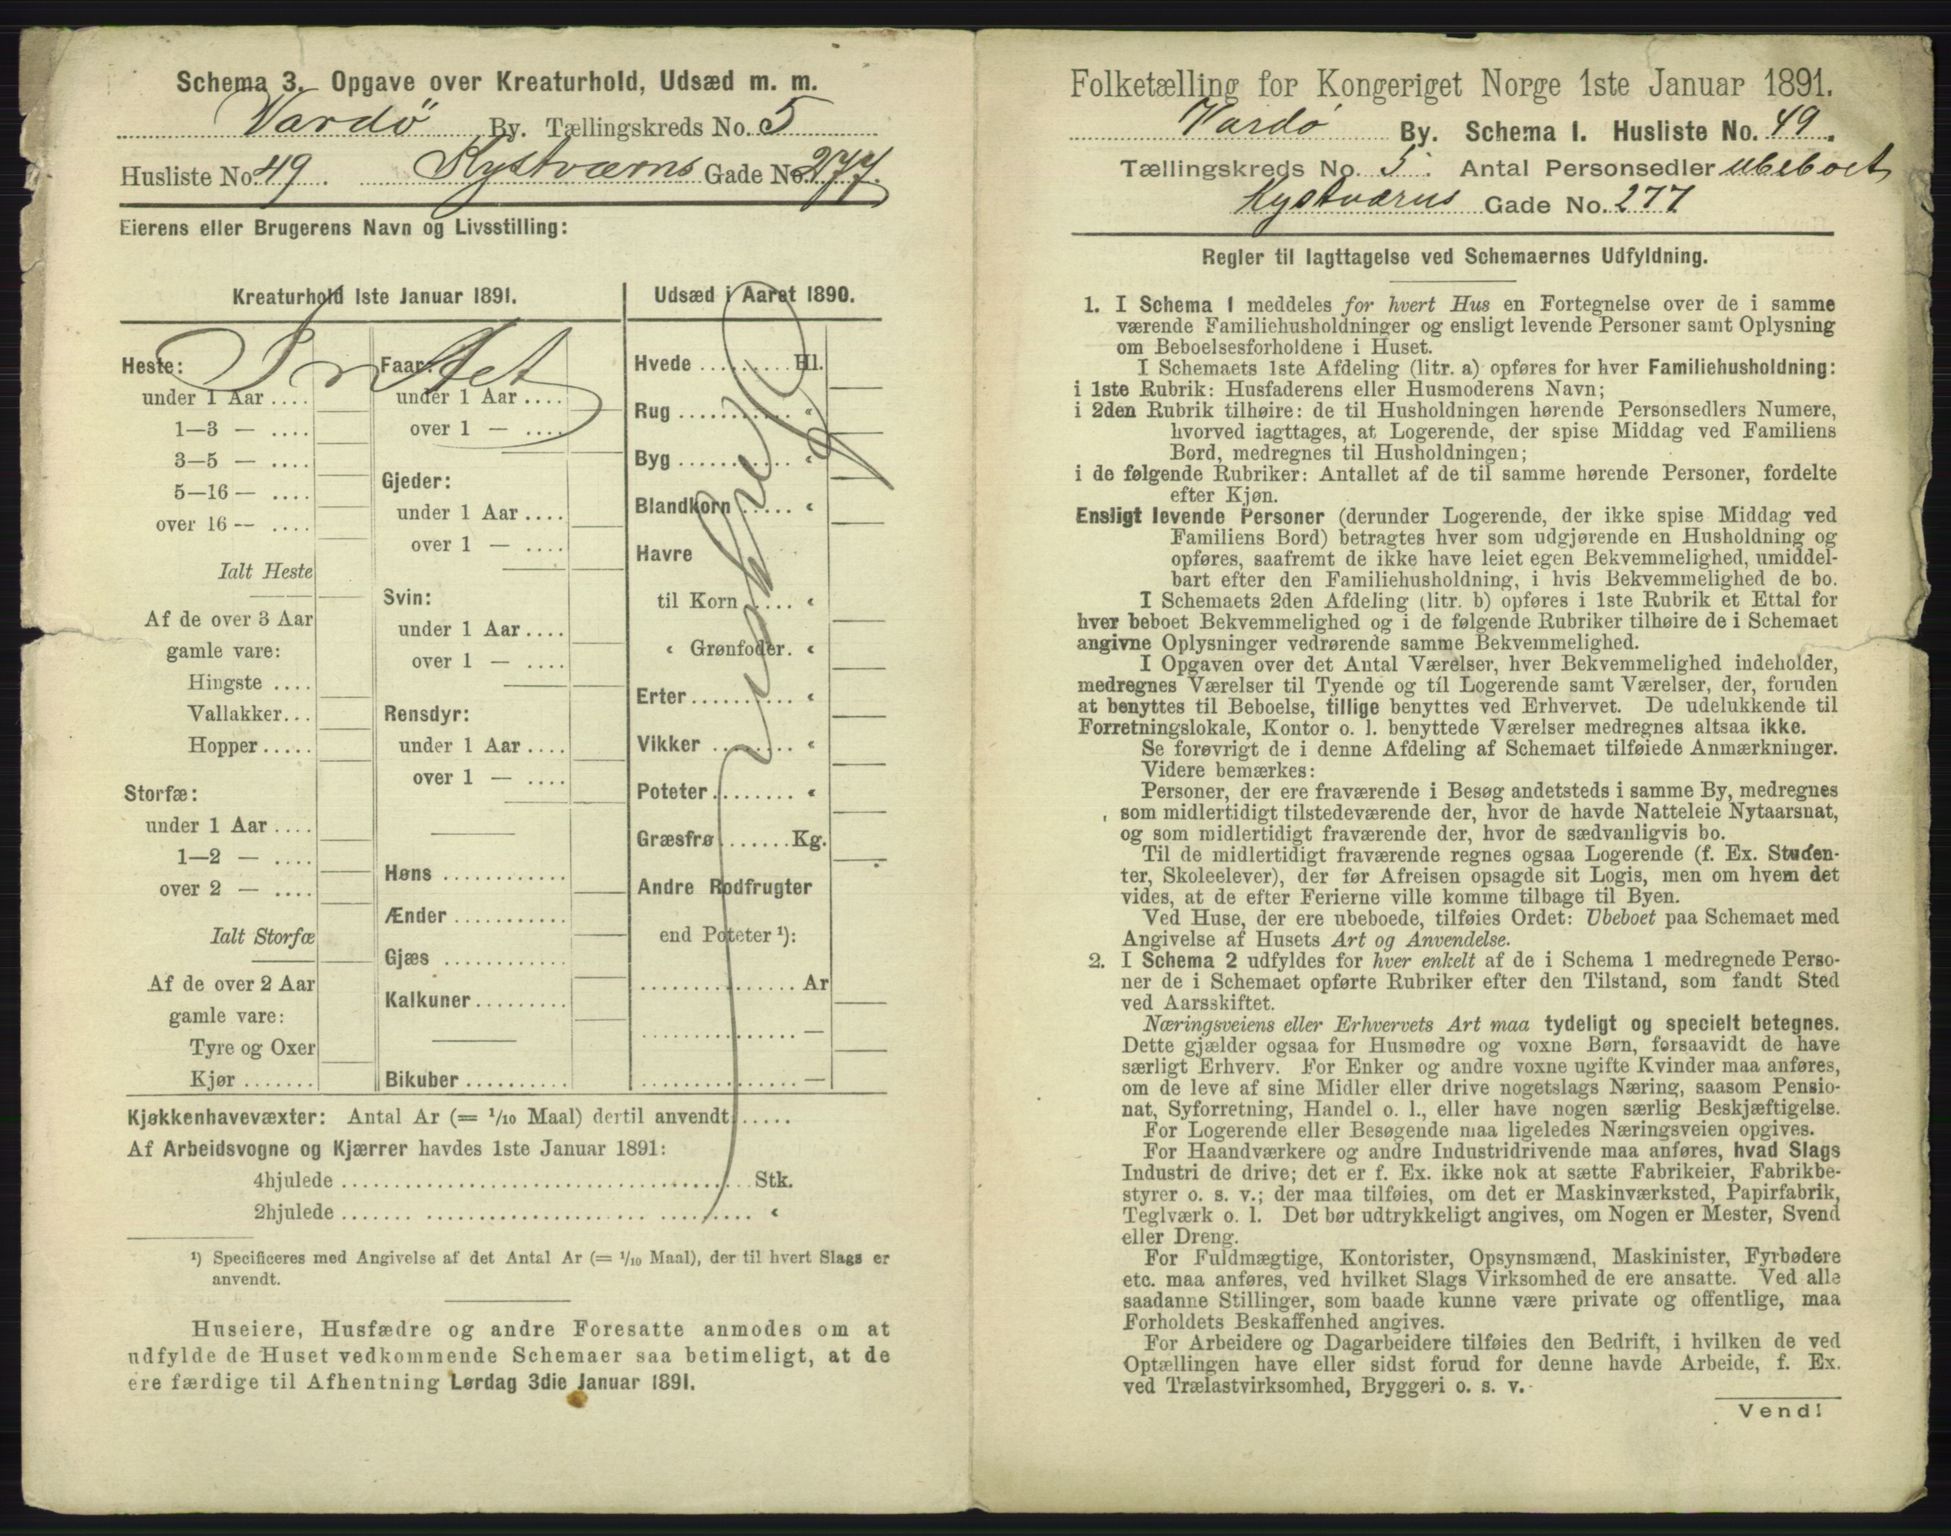 Schema 3. Opgave over Kreaturhold, Udsæd m. m.
Vardö By. Tællingskreds No. 5
Husliste No. 49. Kystværns Gade No. 277.
Eierens eller Brugerens Navn og Livsstilling:
Kreaturhold 1ste Januar 1891.
Intet
Heste:
under 1 Aar ....
1—3 — ....
3—5 — ....
5—16 — ....
over 16 — ....
Ialt Heste
Af de over 3 Aar
gamle vare:
Hingste ....
Vallakker...
Hopper .....
Storfæ:
under 1 Aar ....
1—2 — ....
over 2 — ....
Ialt Storfæ
Af de over 2 Aar
gamle vare:
Tyre og Oxer
Kjør .......
Faar:
under 1 Aar ....
over 1 — ....
Gjeder:
under 1 Aar ....
over 1 — ....
Svin:
under 1 Aar ....
over 1 — ....
Rensdyr:
under 1 Aar ....
over 1 — ....
Høns ............
Ænder ...........
Gjæs ............
Kalkuner.........
Bikuber ..........
Udsæd i Aaret 1890.
Hvede ......... Hl.
Rug ........... “
Byg ........... “
Blandkorn ..... “
Havre
til Korn .... “
“ Grønfoder. “
Erter .......... “
Vikker ........ “
Poteter ........ “
Græsfrø ....... Kg.
Andre Rodfrugter
end Poteter ¹):
................ Ar
................ —
................ —
Kjøkkenhavevæxter: Antal Ar (= 1/10 Maal) dertil anvendt ......
Af Arbeidsvogne og Kjærrer havdes 1ste Januar 1891:
4hjulede ........................................ Stk.
2hjulede ........................................ “
¹) Specificeres med Angivelse af det Antal Ar (= 1/10 Maal), der til hvert Slags er
anvendt.
Huseiere, Husfædre og andre Foresatte anmodes om at
udfylde de Huset vedkommende Schemaer saa betimeligt, at de
ere færdige til Afhentning Lørdag 3die Januar 1891.
Folketælling for Kongeriget Norge 1ste Januar 1891.
Vardö By. Schema 1. Husliste No. 49.
Tællingskreds No. 5. Antal Personsedler ubeboet
Kystværns Gade No. 277
Regler til Iagttagelse ved Schemaernes Udfyldning.
1. I Schema 1 meddeles for hvert Hus en Fortegnelse over de i samme
værende Familiehusholdninger og ensligt levende Personer samt Oplysning
om Beboelsesforholdene i Huset.
I Schemaets 1ste Afdeling (litr. a) opføres for hver Familiehusholdning:
i 1ste Rubrik: Husfaderens eller Husmoderens Navn;
i 2den Rubrik tilhøire: de til Husholdningen hørende Personsedlers Numere,
hvorved iagttages, at Logerende, der spise Middag ved Familiens
Bord, medregnes til Husholdningen;
i de følgende Rubriker: Antallet af de til samme hørende Personer, fordelte
efter Kjøn.
Ensligt levende Personer (derunder Logerende, der ikke spise Middag ved
Familiens Bord) betragtes hver som udgjørende en Husholdning og
opføres, saafremt de ikke have leiet egen Bekvemmelighed, umiddel-
bart efter den Familiehusholdning, i hvis Bekvemmelighed de bo.
I Schemaets 2den Afdeling (litr. b) opføres i 1ste Rubrik et Ettal for
hver beboet Bekvemmelighed og i de følgende Rubriker tilhøire de i Schemaet
angivne Oplysninger vedrørende samme Bekvemmelighed.
I Opgaven over det Antal Værelser, hver Bekvemmelighed indeholder,
medregnes Værelser til Tyende og til Logerende samt Værelser, der, foruden
at benyttes til Beboelse, tillige benyttes ved Erhvervet. De udelukkende til
Forretningslokale, Kontor o. l. benyttede Værelser medregnes altsaa ikke.
Se forøvrigt de i denne Afdeling af Schemaet tilføiede Anmærkninger.
Videre bemærkes:
Personer, der ere fraværende i Besøg andetsteds i samme By, medregnes
som midlertidigt tilstedeværende der, hvor de havde Natteleie Nytaarsnat,
og som midlertidigt fraværende der, hvor de sædvanligvis bo.
Til de midlertidigt fraværende regnes ogsaa Logerende (f. Ex. Studen-
ter, Skoleelever), der før Afreisen opsagde sit Logis, men om hvem det
vides, at de efter Ferierne ville komme tilbage til Byen.
Ved Huse, der ere ubeboede, tilføies Ordet: Ubeboet paa Schemaet med
Angivelse af Husets Art og Anvendelse.
2. I Schema 2 udfyldes for hver enkelt af de i Schema 1 medregnede Perso-
ner de i Schemaet opførte Rubriker efter den Tilstand, som fandt Sted
ved Aarsskiftet.
Næringsveiens eller Erhvervets Art maa tydeligt og specielt betegnes.
Dette gjælder ogsaa for Husmødre og voxne Børn, forsaavidt de have
særligt Erhverv. For Enker og andre voxne ugifte Kvinder maa anføres,
om de leve af sine Midler eller drive nogetslags Næring, saasom Pensio-
nat, Syforretning, Handel o. l., eller have nogen særlig Beskjæftigelse.
For Logerende eller Besøgende maa ligeledes Næringsveien opgives.
For Haandværkere og andre Industridrivende maa anføres, hvad Slags
Industri de drive; det er f. Ex. ikke nok at sætte Fabrikeier, Fabrikbe-
styrer o. s. v.; der maa tilføies, om det er Maskinværksted, Papirfabrik,
Teglværk o. l. Det bør udtrykkeligt angives, om Nogen er Mester, Svend
eller Dreng.
For Fuldmægtige, Kontorister, Opsynsmænd, Maskinister, Fyrbødere
etc. maa anføres, ved hvilket Slags Virksomhed de ere ansatte. Ved alle
saadanne Stillinger, som baade kunne være private og offentlige, maa
Forholdets Beskaffenhed angives.
For Arbeidere og Dagarbeidere tilføies den Bedrift, i hvilken de ved
Optællingen have eller sidst forud for denne havde Arbeide, f. Ex.
ved Trælastvirksomhed, Bryggeri o. s. v.
Vend!